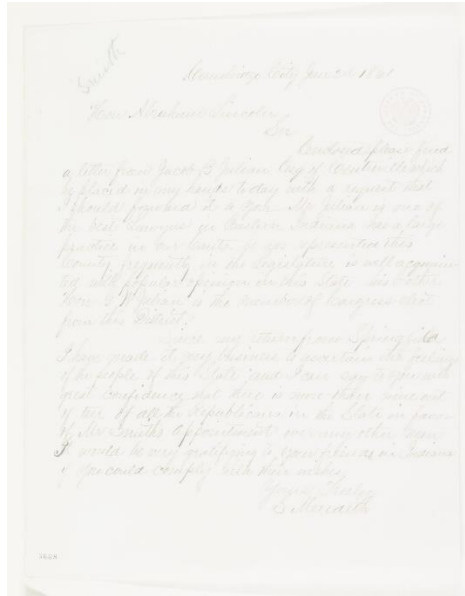 Smith
Cambridge City Jan 22 1861
Hon Abraham Lincoln
Sir
Enclosed please find
a letter from Jacob B Julian Esq of Centreville which
he placed in my hands to day with a request that
I should forward it to you. Mr Julian is one of
the best Lawyers in Eastern Indiana has a large
practice in our Courts
County frequently in the Legislature is well acquain
ted with popular opinion in this State his brother
Hon G W Julian is the member of Congress elect
from this District.
Since my return from Springfield
I have made it my business to ascertain the feelings
of the people of this State and I can say to you with
great confidence that there is more than nine out
of ten of all the Republicans in the State in favor
of Mr Smiths appointment over any other man
It would be very gratifying to your friends in Indiana
if you could comply with their wishes
Yours Truly
S Meredith